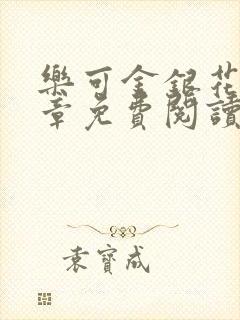 樂可金銀花
章免費閱讀
袁寶成